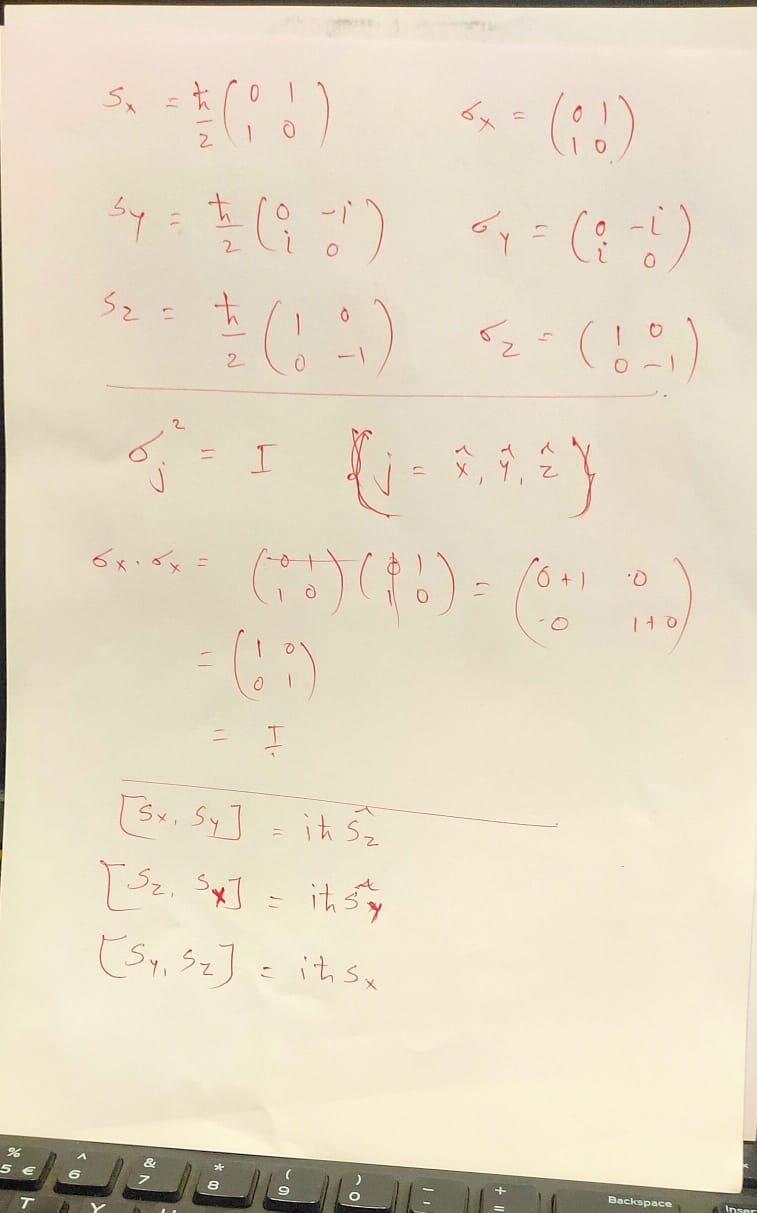 Sx = ħ/2 (0 1; 1 0)    σx = (0 1; 1 0)
Sy = ħ/2 (0 -i; i 0)    σy = (0 -i; i 0)
Sz = ħ/2 (1 0; 0 -1)    σz = (1 0; 0 -1)
σj² = I    {j = x̂, ŷ, ẑ}
σx·σx = (0 1; 1 0) (0 1; 1 0) = (0+1 0; 0 1+0)
= (1 0; 0 1)
= I
[Sx, Sy] = iħ Ŝz
[Sz, Sx] = iħ Ŝy
[Sy, Sz] = iħ Sx
%
5 €
^
6
&
7
*
8
(
9
)
0
_
-
+
=
Backspace
Inser
T
Y